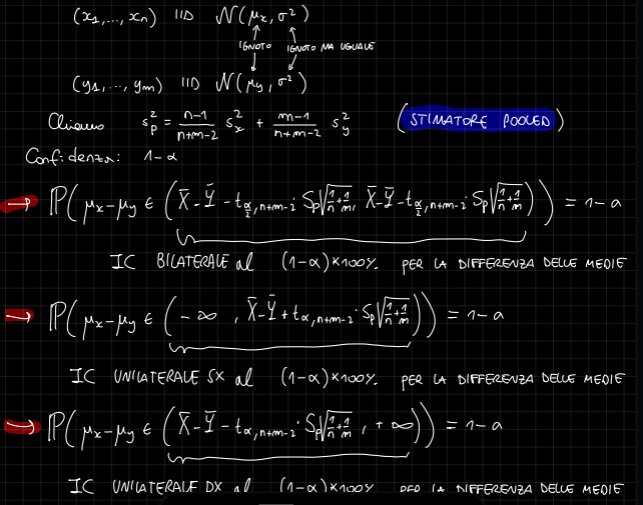 (x₁,...,xₙ) IID N(μₓ, σ²)
IGNOTO IGNOTO MA UGUALE
(y₁,...,yₘ) IID N(μᵧ, σ²)
Chiamo s²ₚ = n-1/n+m-2 s²ₓ + m-1/n+m-2 s²ᵧ (STIMATORE POOLED)
Confidenza: 1-α
→ ℙ(μₓ-μᵧ ∈ (X̄-Ȳ-t_{α/2,n+m-2}·Sₚ√(1/n+1/m), X̄-Ȳ-t_{α/2,n+m-2}·Sₚ√(1/n+1/m))) = 1-a
IC BILATERALE al (1-α)×100%. PER LA DIFFERENZA DELLE MEDIE
→ ℙ(μₓ-μᵧ ∈ (-∞, X̄-Ȳ+t_{α,n+m-2}·Sₚ√(1/n+1/m))) = 1-a
IC UNILATERALE SX al (1-α)×100%. PER LA DIFFERENZA DELLE MEDIE
→ ℙ(μₓ-μᵧ ∈ (X̄-Ȳ-t_{α,n+m-2}·Sₚ√(1/n+1/m), +∞)) = 1-a
IC UNILATERALE DX al (1-α)×100% PER LA DIFFERENZA DELLE MEDIE